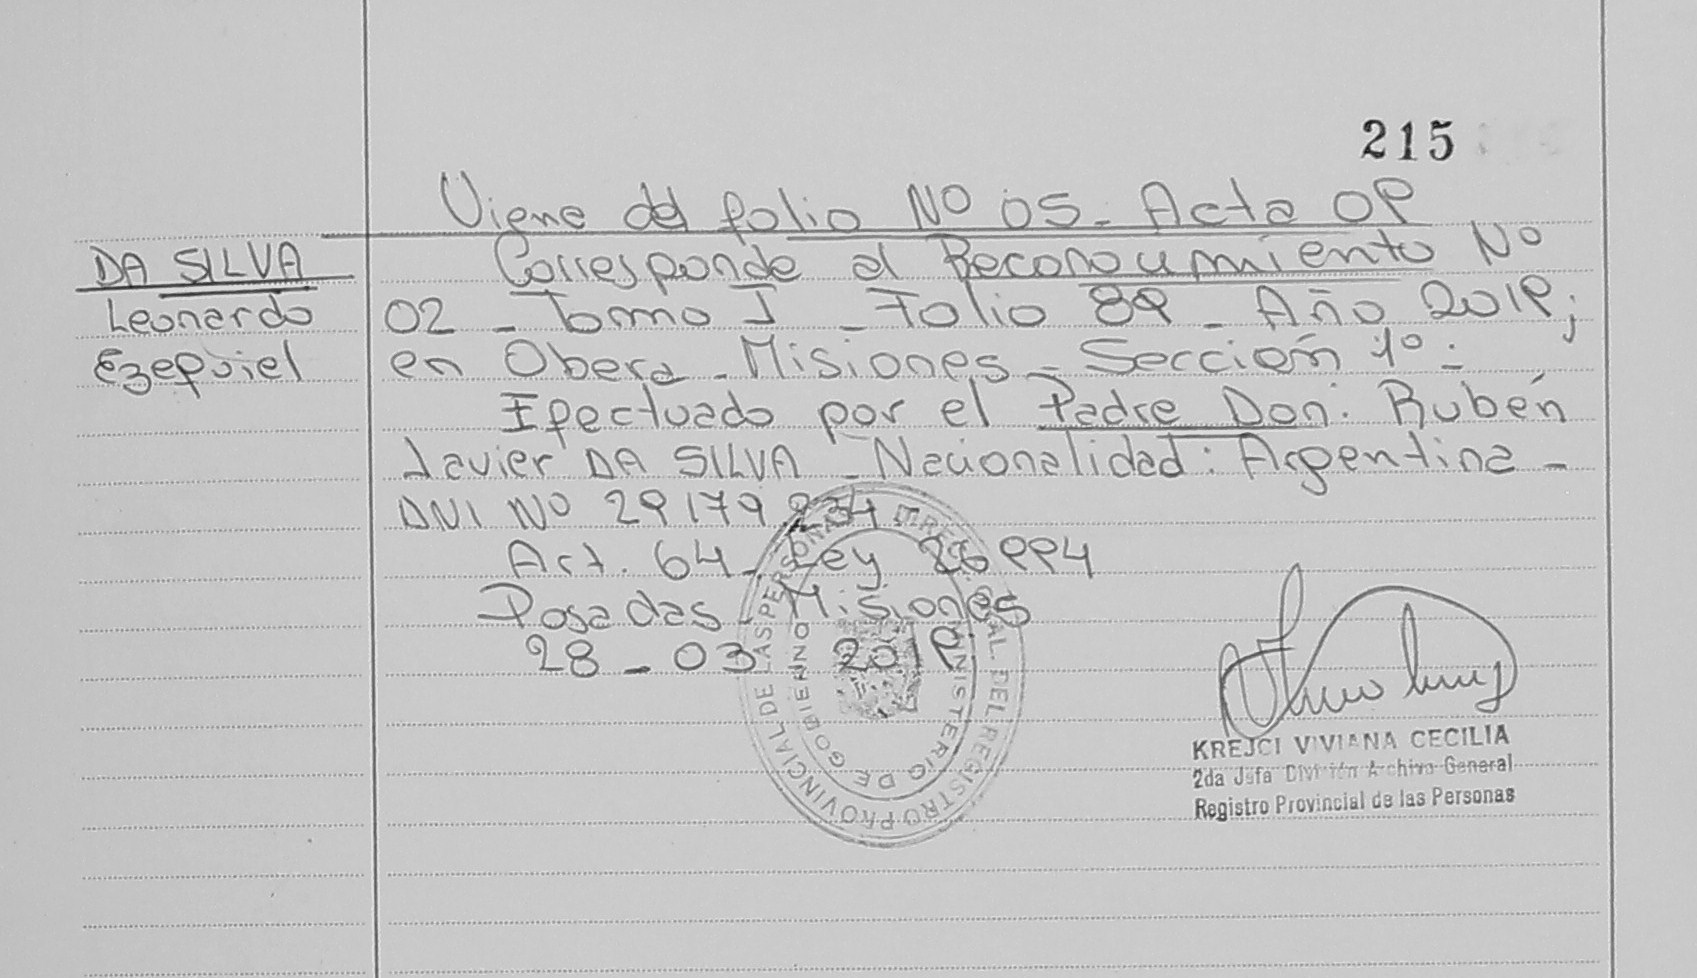 215
Viene del folio Nº 05 - Acta 09
DA SILVA
Leonardo
Ezequiel
Corresponde al Reconocimiento Nº
02 - Tomo I - Folio 89 - Año 2019;
en Obera - Misiones - Sección 1º -
Efectuado por el Padre Don: Rubén
Javier DA SILVA - Nacionalidad: Argentina -
DNI Nº 29179234 -
Art. 64 - Ley 26994
Posadas - Misiones
28 - 03 2019
DIREC. GRAL. DEL REGISTRO PROVINCIAL DE LAS PERSONAS
MINISTERIO DE GOBIERNO
KREJCI VIVIANA CECILIA
2da Jefa División Archivo General
Registro Provincial de las Personas